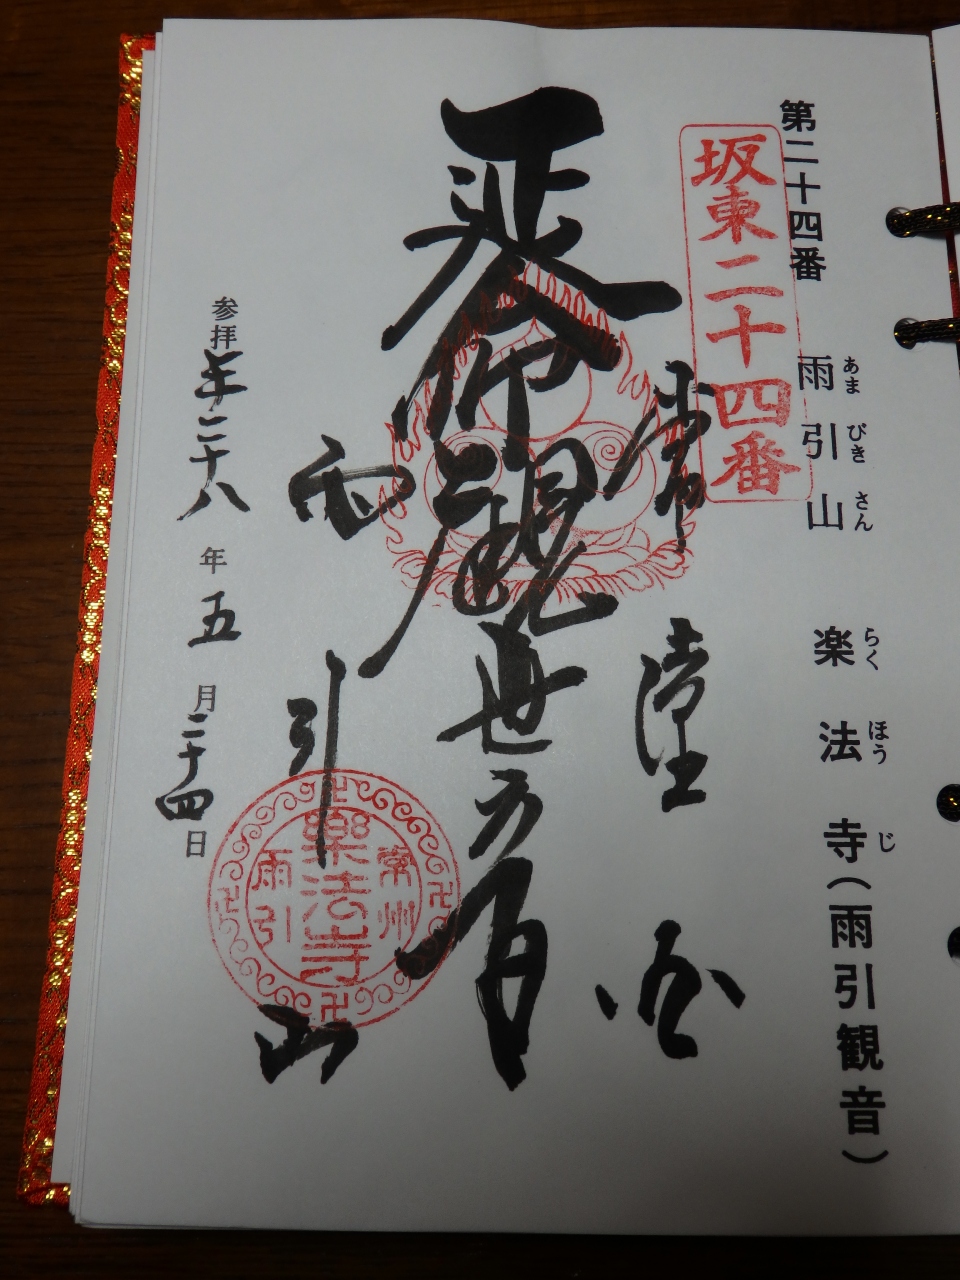 第二十四番 雨引山 楽法寺(雨引観音)
あま びき さん らく ほう じ
坂東二十四番
常陸
観世音
雨引山
常州
樂法寺
雨引
参拝 二十八年五月二十四日